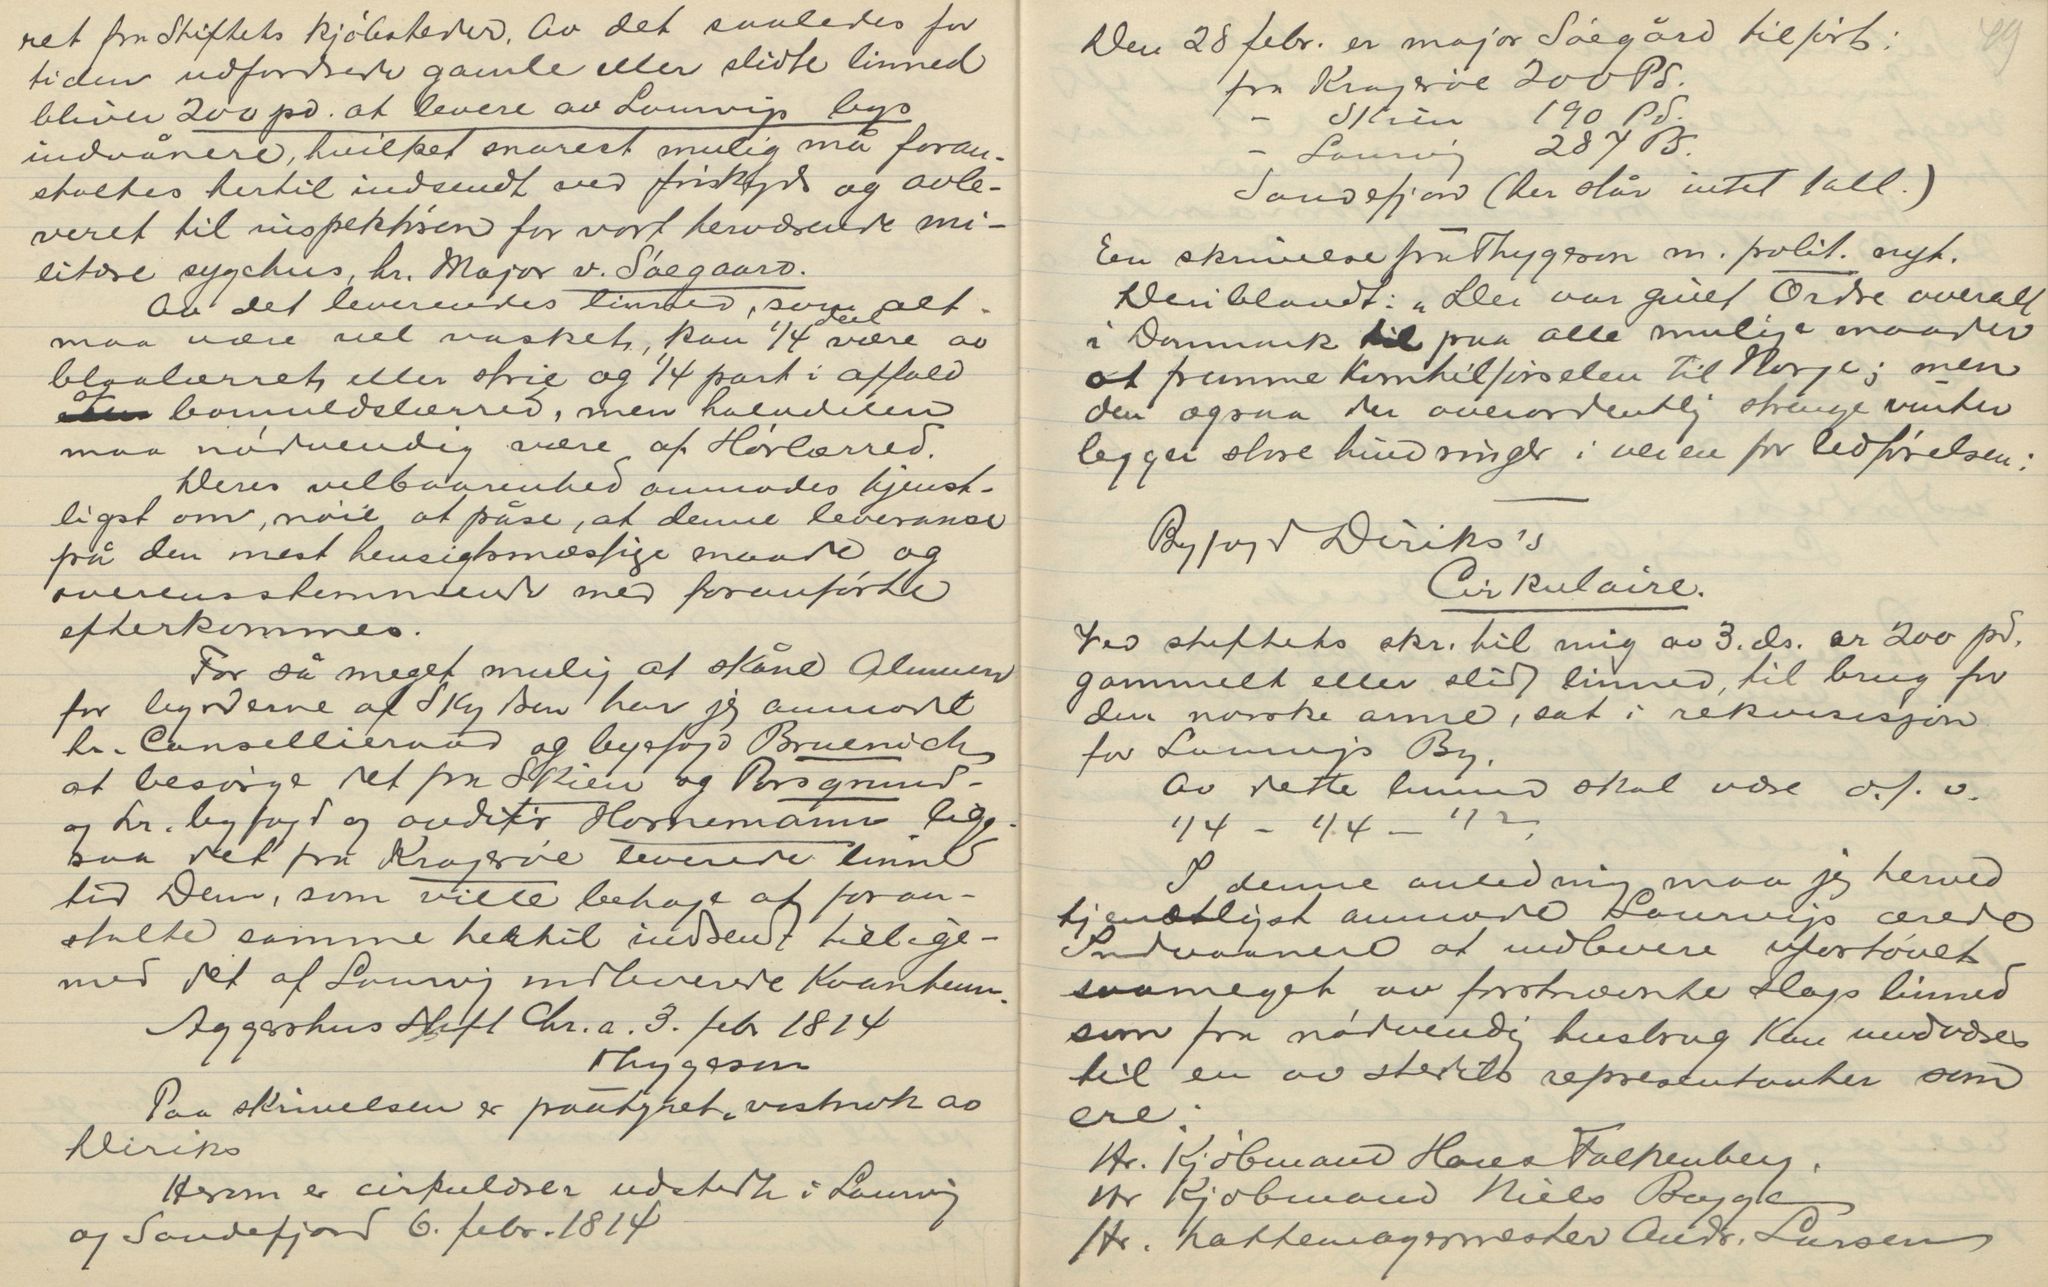 ret fra Stiftets kjøbsteder. Av det saaledes for
tiden udfordrede gamle eller slidte linned
bliver 200 pd. at levere av Laurvigs bys
indvånere, hvilket snarest mulig må foran-
staltes hertil indsendt ved friskyds og avle-
veret til inspektøren for vort herværende mi-
litære sygehus, hr. Major v. Söegaard.
Av det leverendes linned, som alt
maa være vel vasket, kan 1/4 deel være av
blaalærret eller strie og 1/4 part i affald
af bomuldslærred, men halvdelen
maa nødvendig være af Hørlærred.
Deres velbaarenhed anmodes tjenst-
ligst om, nøie at påse, at denne leveranse
på den mest hensigtsmæssige maade og
overensstemmende med foranførte
efterkommes.
For så meget mulig at skåne Almuen
for byrderne af Skydsen har jeg anmodet
hr. Cansellieraad og byefogd Bruenich
at besørge det fra Skien og Porsgrund-
og hr. byfogd og auditør Hornemann lige-
saa det fra Kragerøe leverede linned
til Dem, som ville behage at foran-
stalte samme hertil indsendt tillige-
med det af Laurvig indleverede Kvantum.
Aggershus Stift Chr.a. 3. febr 1814
Thygeson
Paa skrivelsen er paategnet, vostnok av
Diriks
Herom er cirkulærer udstedte i Laurvig
og Sandefjord 6. febr. 1814
49
Den 28 febr. er major Söegård tilført:
fra Kragerøe 200 Pd.
- Skien 190 Pd.
- Laurvig 287 Pd.
Sandefjord (her står intet tall.)
En skrivelse fra Thygeson m. polit. nyt.
Deriblandt: "Der var givet Ordre overalt
i Danmark til paa alle mulige maader
at fremme Korntilførselen til Norge; men
den ogsaa der overordentlig strenge vinter
legger store hindringer i veien for Udførelsen:
Byfogd Diriks's
Cirkulaire.
Ved stiftets skr. til mig av 3. ds. er 200 pd.
gammelt eller slidt linned, til brug for
den norske arme, sat i rekvisisjon
for Laurvigs By.
Av dette linned skal være o.s.v.
1/4 - 1/4 - 1/2,
I denne anledning maa jeg herved
tjenstligst anmode Laurvigs ærede
Indvaanere at indlevere ufortøvet
saameget av forstnævnte slags linned
som fra nødvendig husbrug kan undværes
til en av stedets representanter som
ere:
Hr. Kjøbmand Hans Falkenberg.
Hr Kjøbmand Niels Bagge
Hr. hattemagermester Andr. Larsen